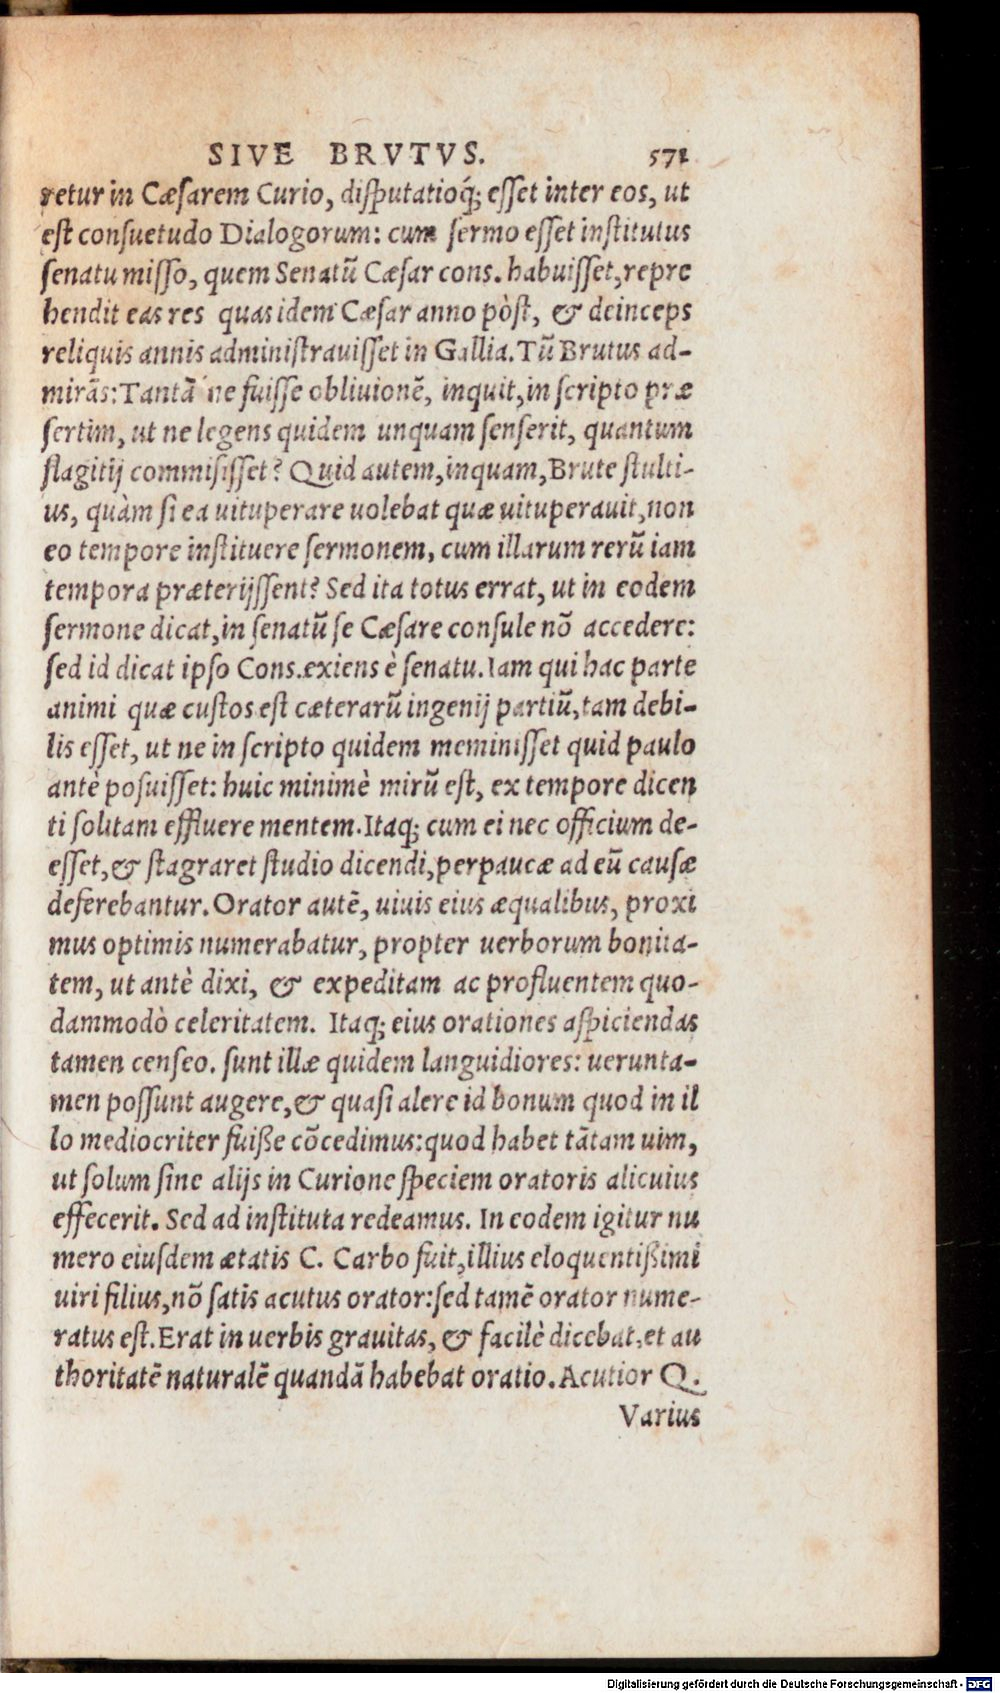 SIVE BRVTVS. 571
retur in Cæsarem Curio, disputatioq́; esset inter eos, ut
est consuetudo Dialogorum: cum sermo esset institutus
senatu misso, quem Senatũ Cæsar cons. habuisset, repre
hendit eas res quas idem Cæsar anno pòst, & deinceps
reliquis annis administrauisset in Gallia. Tũ Brutus ad-
mirãs: Tantã ne fuisse obliuionẽ, inquit, in scripto præ
sertim, ut ne legens quidem unquam senserit, quantum
flagitij commisisset? Quid autem, inquam, Brute stulti-
us, quàm si ea uituperare uolebat quæ uituperauit, non
eo tempore instituere sermonem, cum illarum rerũ iam
tempora præterijssent? Sed ita totus errat, ut in eodem
sermone dicat, in senatũ se Cæsare consule nõ accedere:
sed id dicat ipso Cons. exiens è senatu. Iam qui hac parte
animi quæ custos est cæterarũ ingenij partiũ, tam debi-
lis esset, ut ne in scripto quidem meminisset quid paulo
antè posuisset: huic minimè mirũ est, ex tempore dicen
ti solitam effluere mentem. Itaq; cum ei nec officium de-
esset, & flagraret studio dicendi, perpaucæ ad eũ causæ
deferebantur. Orator autẽ, uiuis eius æqualibus, proxi
mus optimis numerabatur, propter uerborum bonita-
tem, ut antè dixi, & expeditam ac profluentem quo-
dammodò celeritatem. Itaq; eius orationes aspiciendas
tamen censeo. sunt illæ quidem languidiores: uerunta-
men possunt augere, & quasi alere id bonum quod in il
lo mediocriter fuiße cõcedimus: quod habet tãtam uim,
ut solum sine alijs in Curione speciem oratoris alicuius
effecerit. Sed ad instituta redeamus. In eodem igitur nu
mero eiusdem ætatis C. Carbo fuit, illius eloquentißimi
uiri filius, nõ satis acutus orator: sed tamẽ orator nume-
ratus est. Erat in uerbis grauitas, & facilè dicebat, et au
thoritatẽ naturalẽ quandã habebat oratio. Acutior Q.
Varius
Digitalisierung gefördert durch die Deutsche Forschungsgemeinschaft - DFG